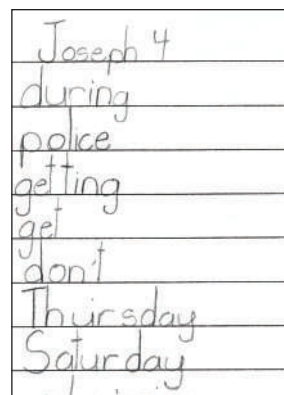 Joseph 4
during
police
getting
get
don't
Thursday
Saturday